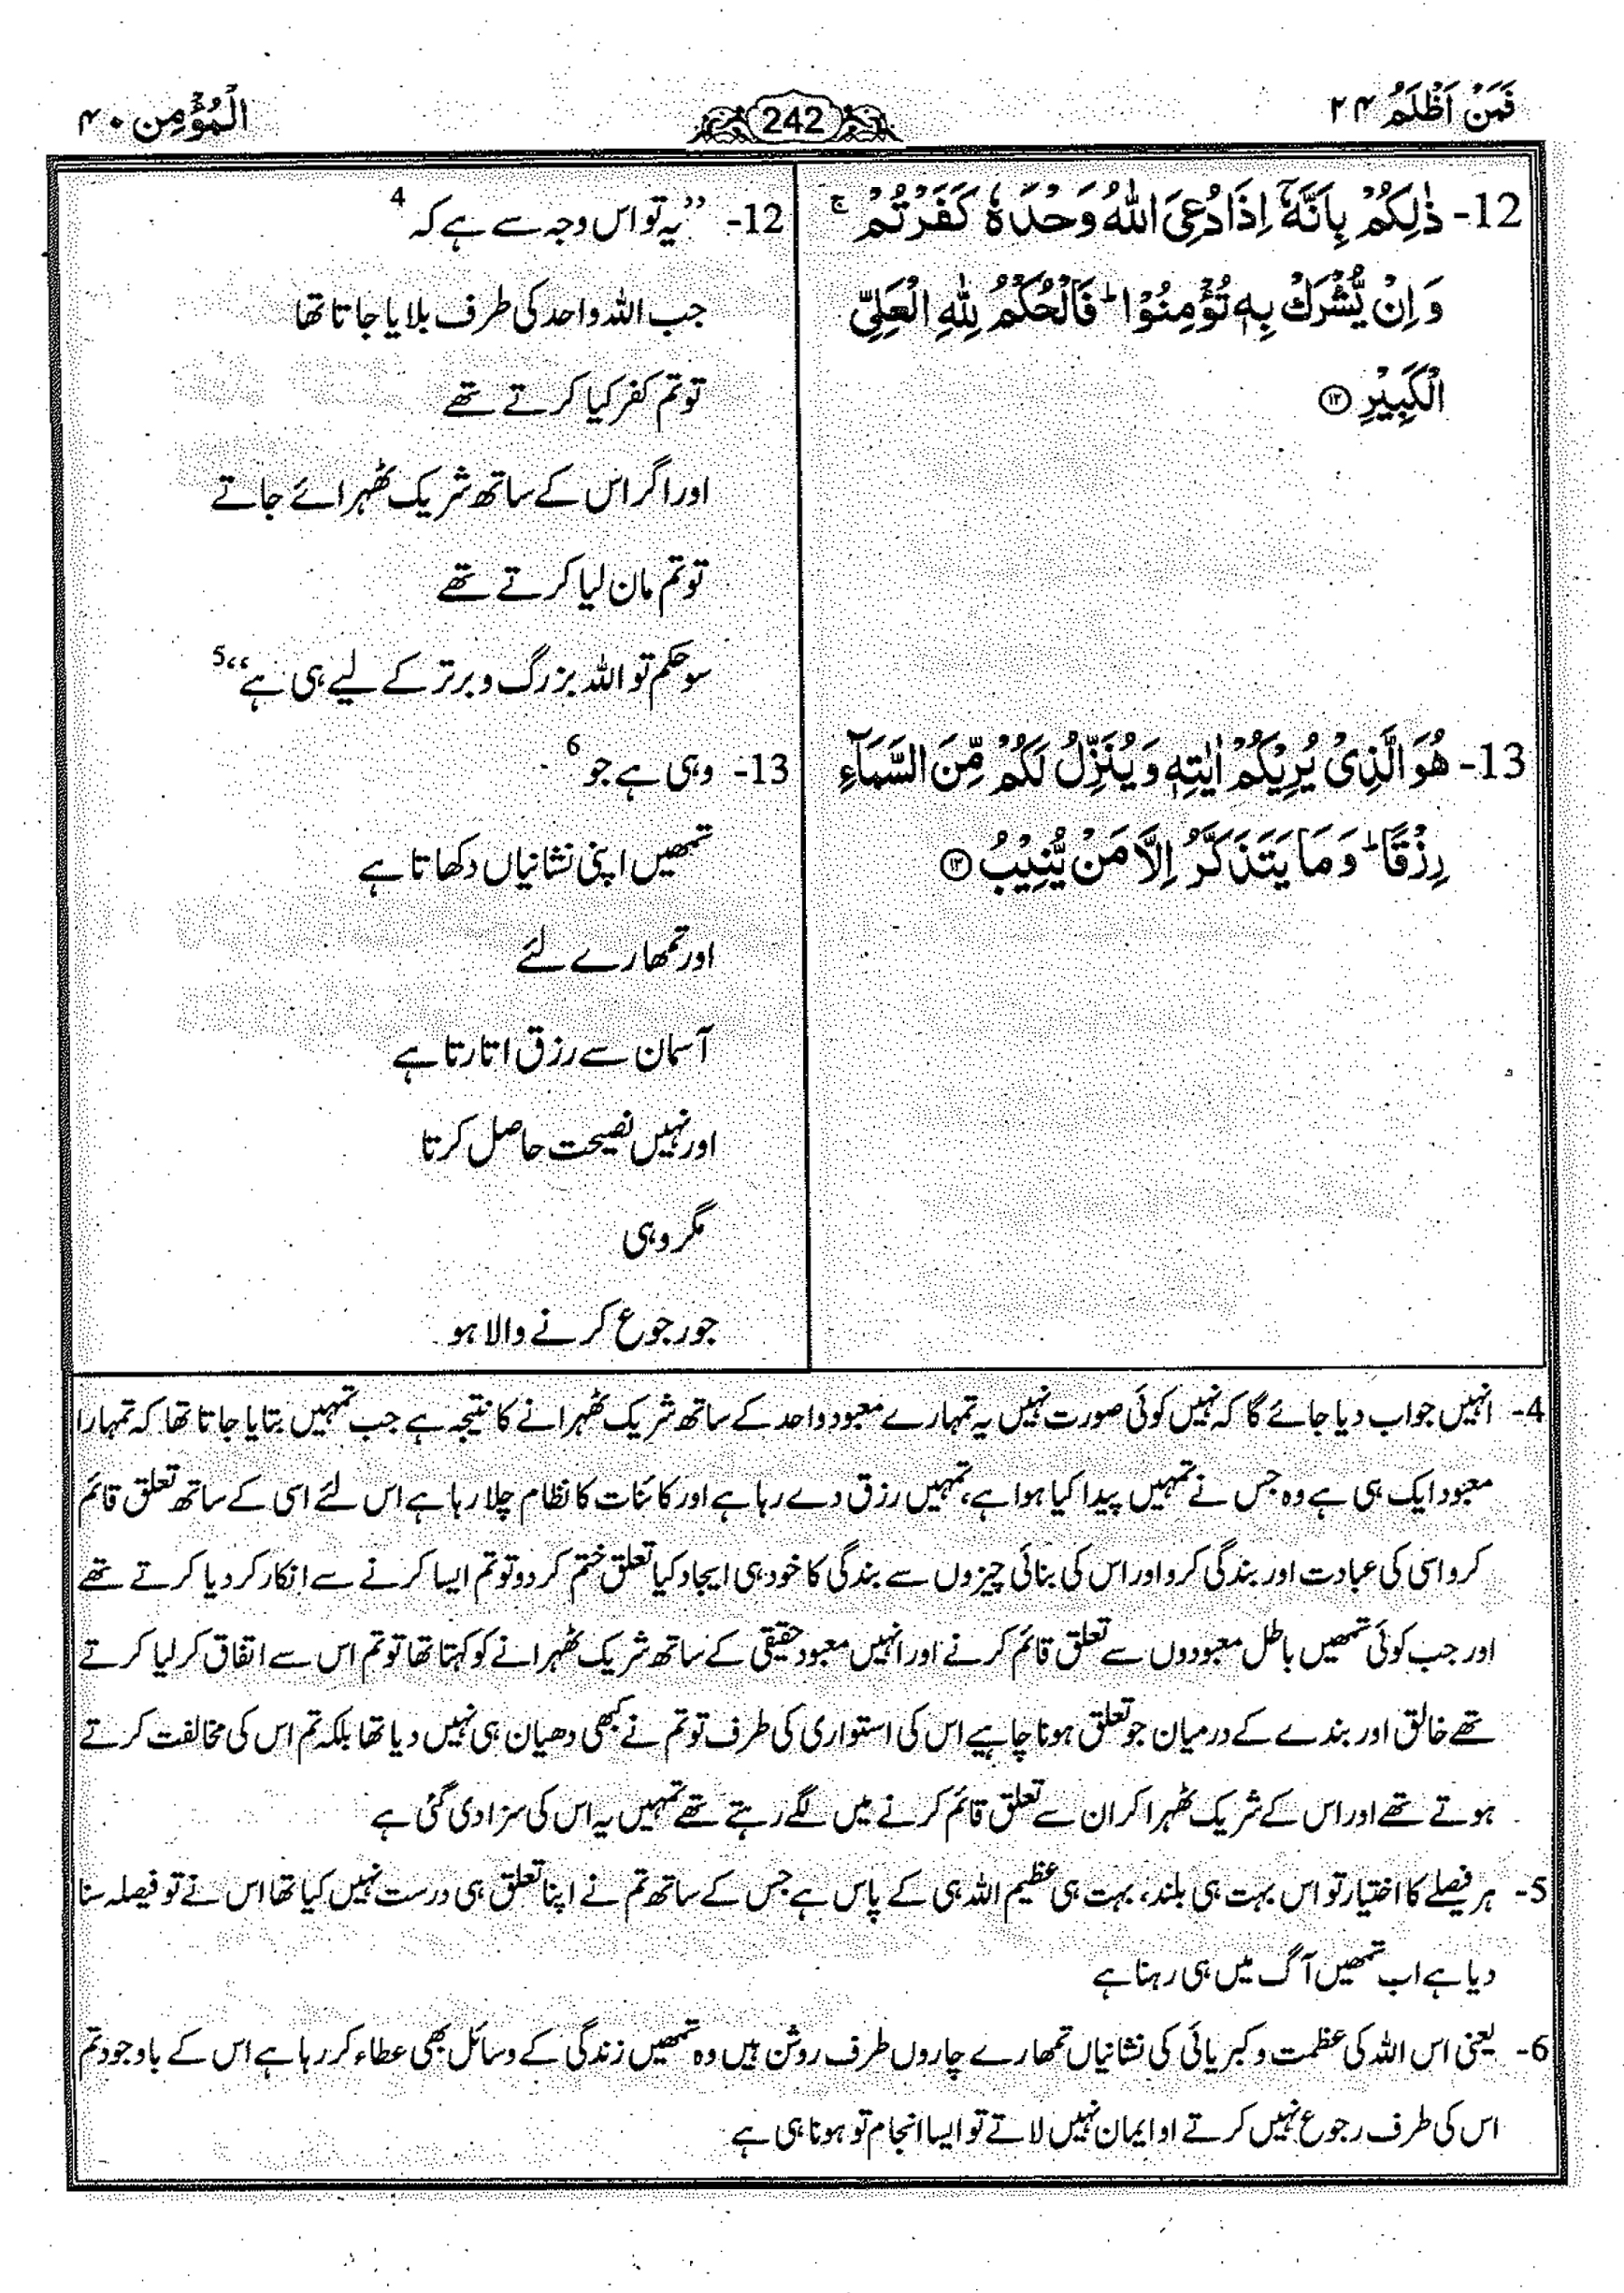 فَمَنْ اَظْلَمُ ۲۴
242
الْمُؤْمِن ۴۰
12- ذٰلِكُمْ بِاَنَّهٗۤ اِذَا دُعِیَ اللّٰهُ وَحْدَهٗ كَفَرْتُمْ ۚ
وَ اِنْ یُّشْرَكْ بِهٖ تُؤْمِنُوْا ؕ فَالْحُكْمُ لِلّٰهِ الْعَلِیِّ
الْكَبِیْرِ ۝۱۲
13- هُوَ الَّذِیْ یُرِیْكُمْ اٰیٰتِهٖ وَ یُنَزِّلُ لَكُمْ مِّنَ السَّمَآءِ
رِزْقًا ؕ وَ مَا یَتَذَكَّرُ اِلَّا مَنْ یُّنِیْبُ ۝۱۳
12- ”یہ تو اس وجہ سے ہے کہ 4
جب اللہ واحد کی طرف بلایا جاتا تھا
تو تم کفر کیا کرتے تھے
اور اگر اس کے ساتھ شریک ٹھہرائے جاتے
تو تم مان لیا کرتے تھے
سو حکم تو اللہ بزرگ و برتر کے لیے ہی ہے“ 5
13- وہی ہے جو 6
تمھیں اپنی نشانیاں دکھاتا ہے
اور تمھارے لئے
آسمان سے رزق اتارتا ہے
اور نہیں نصیحت حاصل کرتا
مگر وہی
جو رجوع کرنے والا ہو
4- انہیں جواب دیا جائے گا کہ نہیں کوئی صورت نہیں یہ تمہارے معبود واحد کے ساتھ شریک ٹھہرانے کا نتیجہ ہے جب تمہیں بتایا جاتا تھا کہ تمہارا
معبود ایک ہی ہے وہ جس نے تمہیں پیدا کیا ہوا ہے، تمہیں رزق دے رہا ہے اور کائنات کا نظام چلا رہا ہے اس لئے اسی کے ساتھ تعلق قائم
کرو اسی کی عبادت اور بندگی کرو اور اس کی بنائی چیزوں سے بندگی کا خود ہی ایجاد کیا تعلق ختم کر دو تو تم ایسا کرنے سے انکار کر دیا کرتے تھے
اور جب کوئی تمھیں باطل معبودوں سے تعلق قائم کرنے اور انہیں معبود حقیقی کے ساتھ شریک ٹھہرانے کو کہتا تھا تو تم اس سے اتفاق کر لیا کرتے
تھے خالق اور بندے کے درمیان جو تعلق ہونا چاہیے اس کی استواری کی طرف تو تم نے کبھی دھیان ہی نہیں دیا تھا بلکہ تم اس کی مخالفت کرتے
ہوتے تھے اور اس کے شریک ٹھہرا کر ان سے تعلق قائم کرنے میں لگے رہتے تھے تمہیں یہ اس کی سزا دی گئی ہے
5- ہر فیصلے کا اختیار تو اس بہت ہی بلند، بہت ہی عظیم اللہ ہی کے پاس ہے جس کے ساتھ تم نے اپنا تعلق ہی درست نہیں کیا تھا اس نے تو فیصلہ سنا
دیا ہے اب تمھیں آگ میں ہی رہنا ہے
6- یعنی اس اللہ کی عظمت و کبریائی کی نشانیاں تمھارے چاروں طرف روشن ہیں وہ تمھیں زندگی کے وسائل بھی عطاء کر رہا ہے اس کے باوجود تم
اس کی طرف رجوع نہیں کرتے او ایمان نہیں لاتے تو ایسا انجام تو ہونا ہی ہے